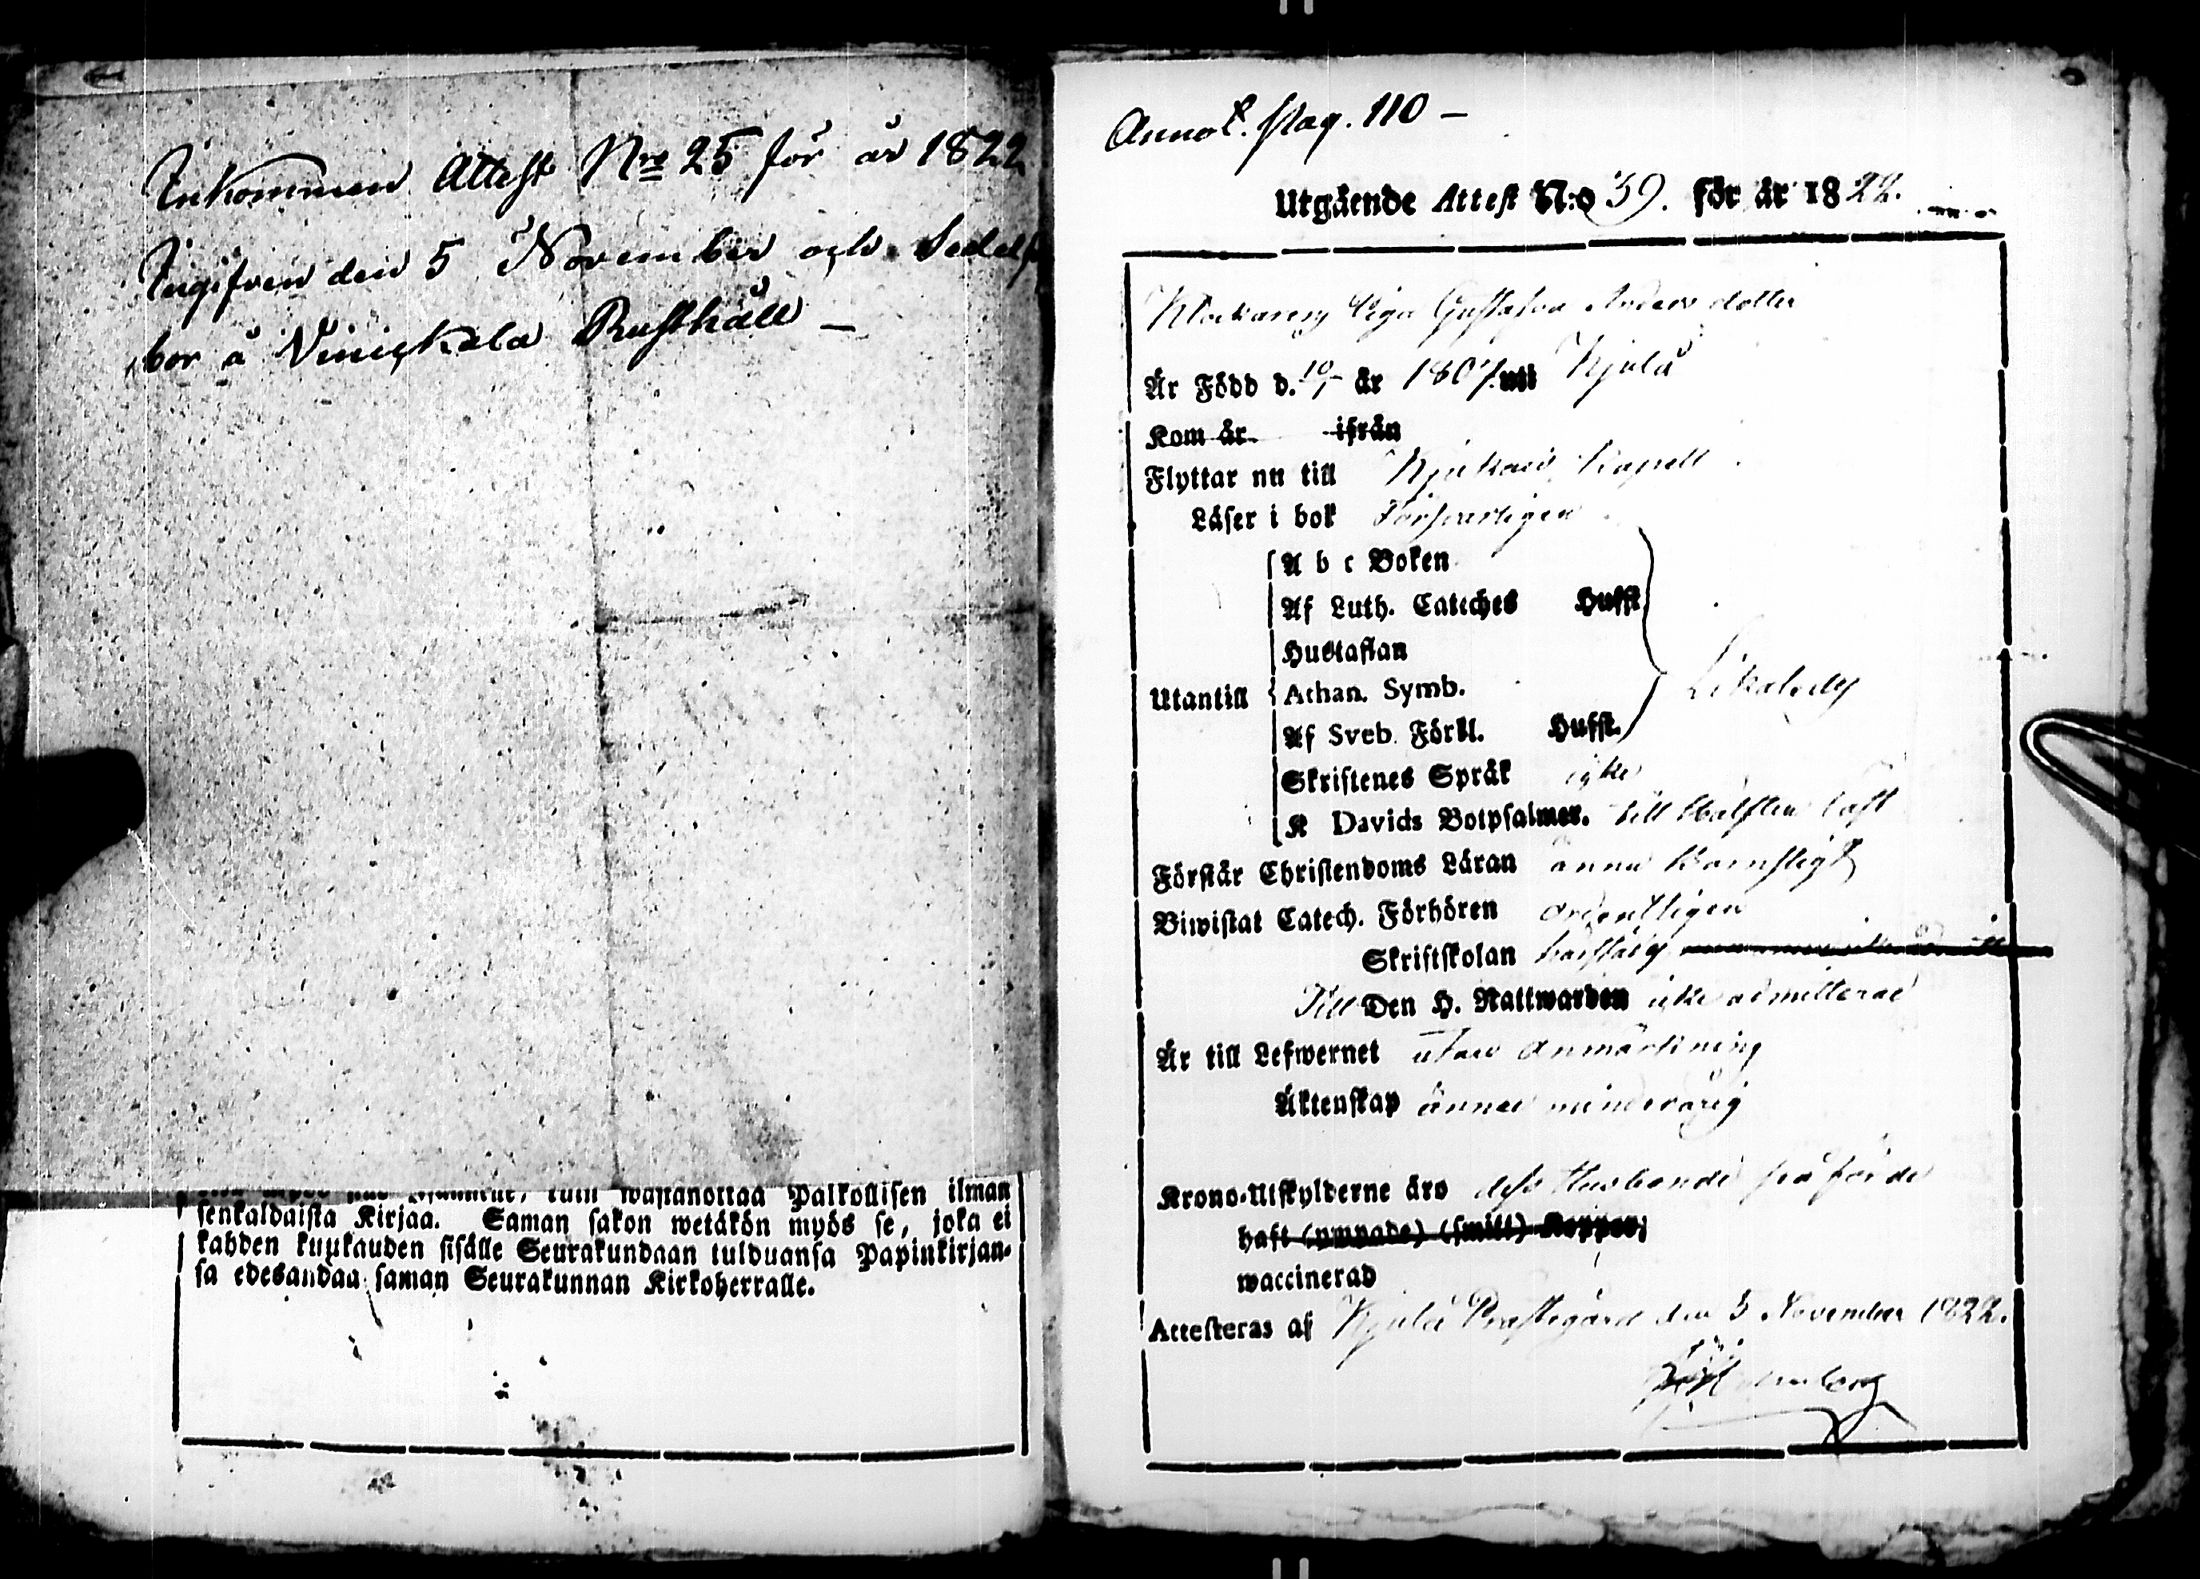 Inkommen Attest Nro 25 för år 1822
Ingifven den 5 November och
bor å Rusthåll –
senkaldaista Kirjaa. Saman sakon wetäkön myös se, joka ei
kahden kuukauden sisälle Seurakundaan tulduansa Papinkirjan-
sa edesandaa saman Seurakunnan Kirkoherralle.
Annot. pag. 110 –
Utgående Attest N:o 39. för år 1822.
Piga Gustafva Anders dotter
Är Född d. 10/1 år 1807 uti Kjulå
Kom år ifrån
Flyttar nu till Kjukais Kapell
Läser i bok Försvarligen
A b c Boken
Af Luth. Cateches Hufst.
Hustaflan
Utantill Athan. Symb. Likaledes
Af Sveb. Förkl. Hufst.
Skriftenes Språk icke
K Davids Botpsalmer. till Hälften läst
Förstår Christendoms Läran ännu barnsligt
Biwistat Catech. Förhören ordentligen
Skriftskolan
Till Den H. Nattwarden icke admitterad
Är till Lefwernet utan anmärkning
Äktenskap ännu minderårig
Krono-Utskylderne äro dess Husbonde påförde
haft (ympade) (smitt) Koppor;
waccinerad
Attesteras af Kjulå Prästegård den 3 November 1822.